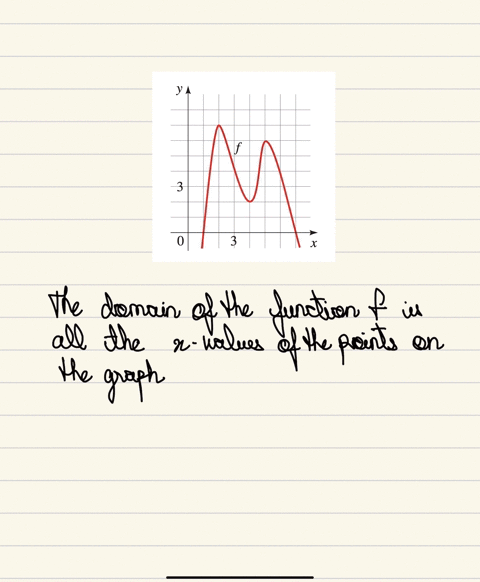 y
f
3
0
3
x
The domain of the function f is
all the x-values of the points on
the graph